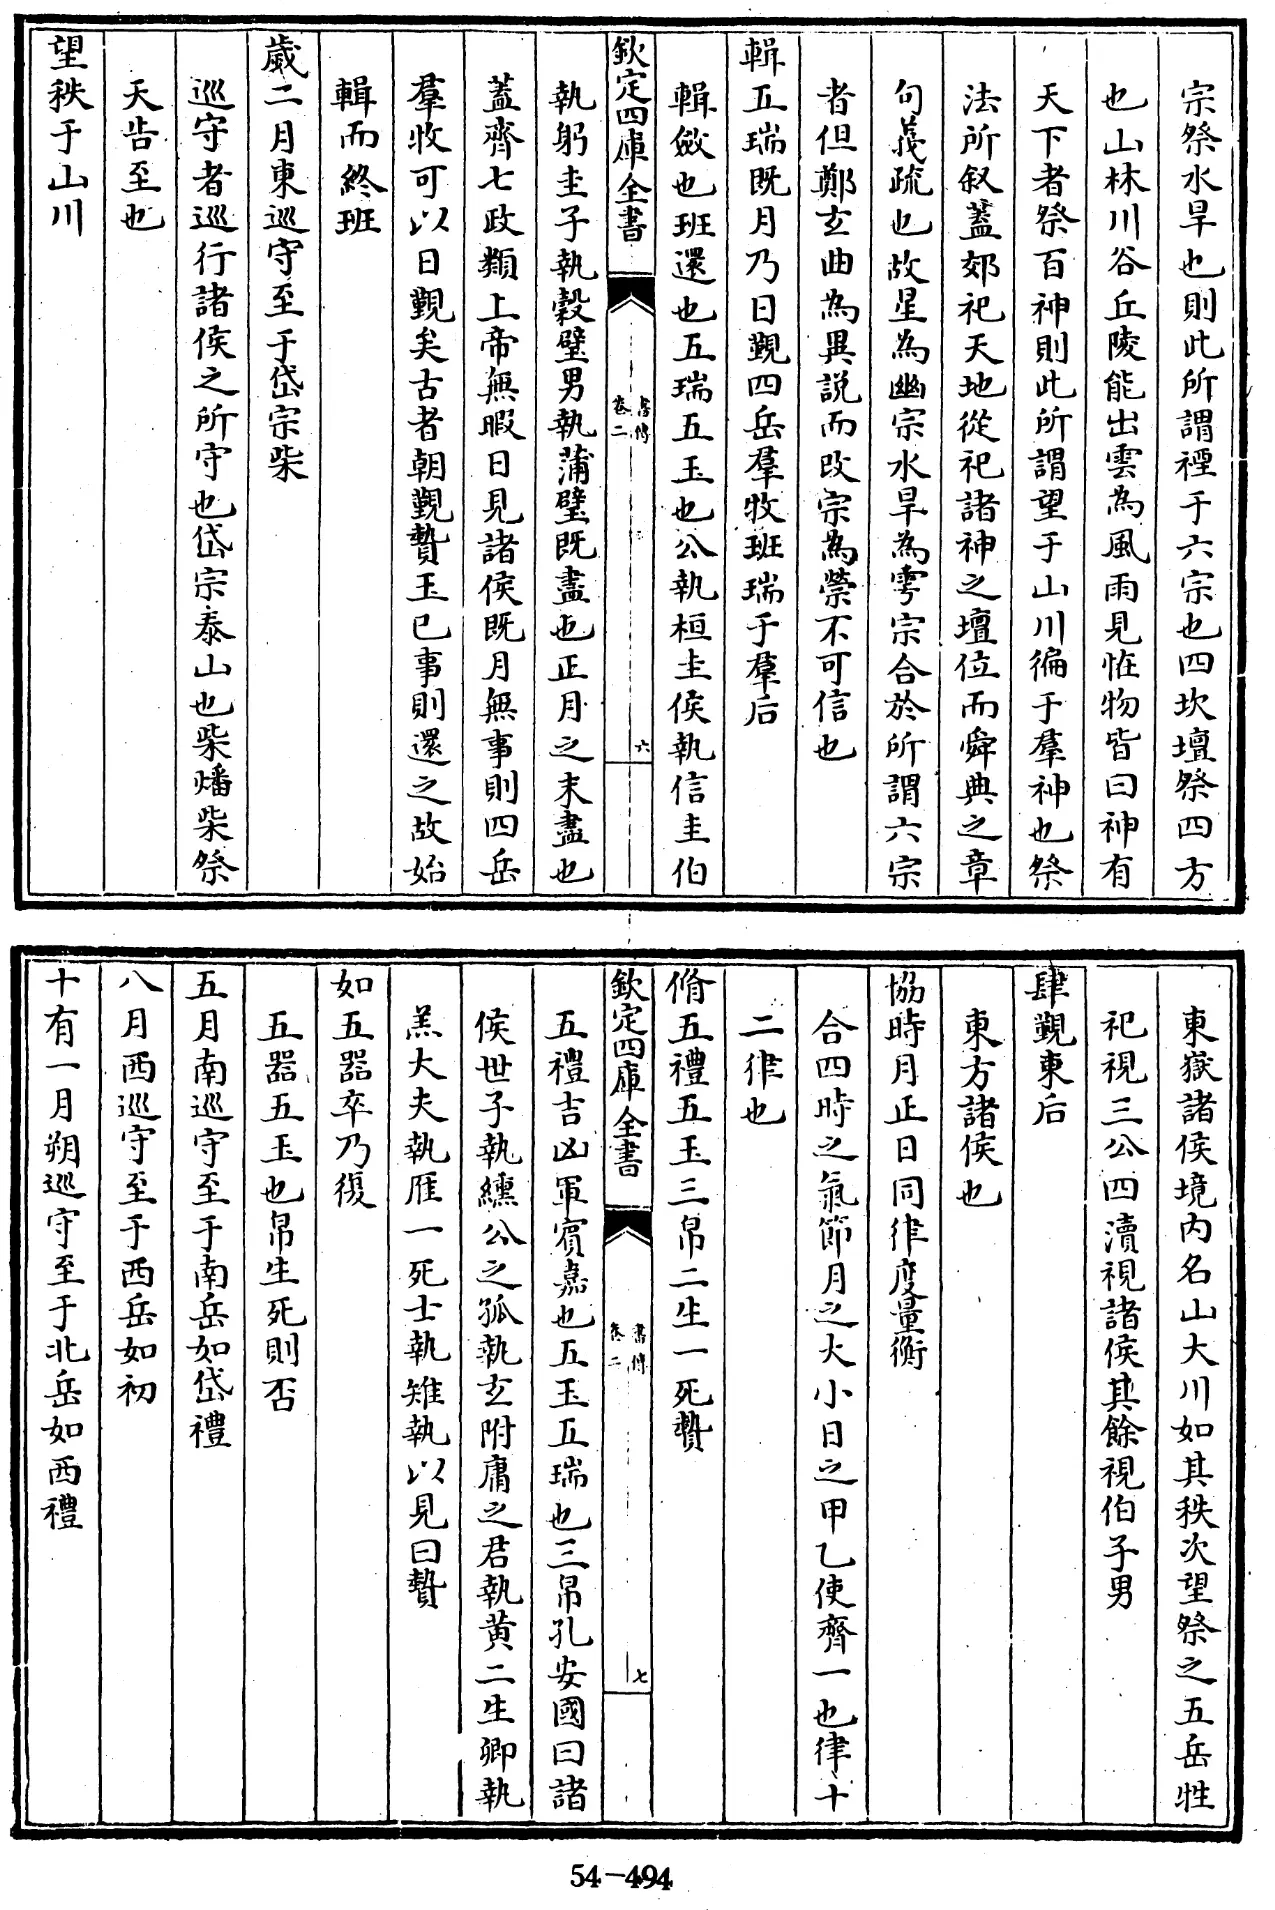 宗祭水旱也則此所謂禋于六宗也四坎壇祭四方
也山林川谷丘陵能出雲為風雨見怪物皆曰神有
天下者祭百神則此所謂望于山川徧于羣神也祭
法所叙蓋郊祀天地從祀諸神之壇位而舜典之章
句義疏也故星為幽宗水旱為雩宗合於所謂六宗
者但鄭玄曲為異説而改宗為禜不可信也
輯五瑞既月乃日覲四岳羣牧班瑞于羣后
輯斂也班還也五瑞五玉也公執桓圭侯執信圭伯
欽定四庫全書
書傳
卷二
六
執躬圭子執穀璧男執蒲璧既盡也正月之末盡也
蓋齊七政類上帝無暇日見諸侯既月無事則四岳
羣牧可以日覲矣古者朝覲贄玉已事則還之故始
輯而終班
歲二月東巡守至于岱宗柴
巡守者巡行諸侯之所守也岱宗泰山也柴燔柴祭
天告至也
望秩于山川
東嶽諸侯境内名山大川如其秩次望祭之五岳牲
祀視三公四瀆視諸侯其餘視伯子男
肆覲東后
東方諸侯也
協時月正日同律度量衡
合四時之氣節月之大小日之甲乙使齊一也律十
二律也
脩五禮五玉三帛二生一死贄
欽定四庫全書
書傳
卷二
七
五禮吉凶軍賓嘉也五玉五瑞也三帛孔安國曰諸
侯世子執纁公之孤執玄附庸之君執黄二生卿執
羔大夫執雁一死士執雉執以見曰贄
如五器卒乃復
五器五玉也帛生死則否
五月南巡守至于南岳如岱禮
八月西巡守至于西岳如初
十有一月朔巡守至于北岳如西禮
54-494